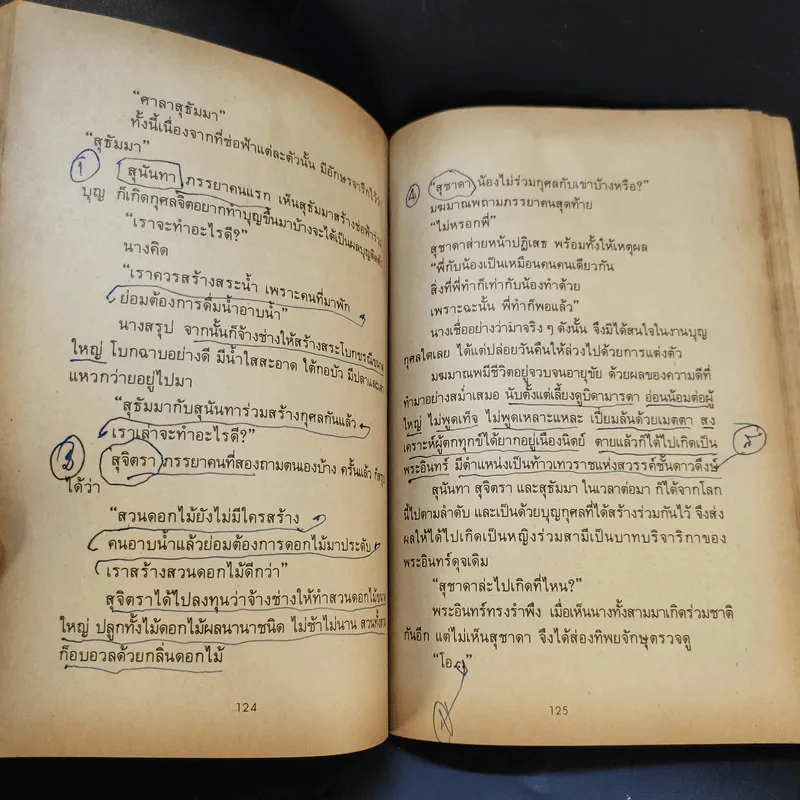 “ศาลาสุธัมมา”
ทั้งนี้เนื่องจากที่ช่อฟ้าแต่ละตัวนั้น มีอักษรจารึกไว้ว่า
“สุธัมมา”
1
สุนันทา ภรรยาคนแรก เห็นสุธัมมาสร้างช่อฟ้าร่วม
บุญ ก็เกิดกุศลจิตอยากทำบุญขึ้นมาบ้างจะได้เป็นผลบุญ
“เราจะทำอะไรดี?”
นางคิด
“เราควรสร้างสระน้ำ เพราะคนที่มาพัก
ย่อมต้องการดื่มน้ำอาบน้ำ”
นางสรุป จากนั้นก็จ้างช่างให้สร้างสระโบกขรณีขนาด
ใหญ่ โบกฉาบอย่างดี มีน้ำใสสะอาด ใต้กอบัว มีปลาและ
แหวกว่ายอยู่ไปมา
“สุธัมมากับสุนันทาร่วมสร้างกุศลกันแล้ว
เราเล่าจะทำอะไรดี?”
3
สุจิตรา ภรรยาคนที่สองถามตนเองบ้าง ครั้นแล้ว ก็
ได้ว่า
“สวนดอกไม้ยังไม่มีใครสร้าง
คนอาบน้ำแล้วย่อมต้องการดอกไม้มาประดับ
เราสร้างสวนดอกไม้ดีกว่า”
สุจิตราได้ไปลงทุนว่าจ้างช่างให้ทำสวนดอกไม้ขนาด
ใหญ่ ปลูกทั้งไม้ดอกไม้ผลนานาชนิด ไม่ช้าไม่นาน สวนทั้งสวน
ก็อบอวลด้วยกลิ่นดอกไม้
124
4
“สุชาดา น้องไม่ร่วมกุศลกับเขาบ้างหรือ?”
มฆมาณพถามภรรยาคนสุดท้าย
“ไม่หรอกพี่”
สุชาดาส่ายหน้าปฏิเสธ พร้อมทั้งให้เหตุผล
“พี่กับน้องเป็นเหมือนคนคนเดียวกัน
สิ่งที่พี่ทำก็เท่ากับน้องทำด้วย
เพราะฉะนั้น พี่ทำก็พอแล้ว”
นางเชื่ออย่างว่ามาจริง ๆ ดังนั้น จึงมิได้สนใจในงานบุญ
กุศลใดเลย ได้แต่ปล่อยวันคืนให้ล่วงไปด้วยการแต่งตัว
มฆมาณพมีชีวิตอยู่จวบจนอายุขัย ด้วยผลของความดีที่
ทำมาอย่างสม่ำเสมอ นับตั้งแต่เลี้ยงดูบิดามารดา อ่อนน้อมต่อผู้
ใหญ่ ไม่พูดเท็จ ไม่พูดเหลาะแหละ เปี่ยมล้นด้วยเมตตา สง
เคราะห์ผู้ตกทุกข์ได้ยากอยู่เนืองนิตย์ ตายแล้วก็ได้ไปเกิดเป็น
พระอินทร์ มีตำแหน่งเป็นท้าวเทวราชแห่งสวรรค์ชั้นดาวดึงษ์
สุนันทา สุจิตรา และสุธัมมา ในเวลาต่อมา ก็ได้จากโลก
นี้ไปตามลำดับ และเป็นด้วยบุญกุศลที่ได้สร้างร่วมกันไว้ จึงส่ง
ผลให้ได้ไปเกิดเป็นหญิงร่วมสามีเป็นบาทบริจาริกาของ
พระอินทร์ดุจเดิม
“สุชาดาล่ะไปเกิดที่ไหน?”
พระอินทร์ทรงรำพึง เมื่อเห็นนางทั้งสามมาเกิดร่วมชาติ
กันอีก แต่ไม่เห็นสุชาดา จึงได้ส่องทิพยจักษุตรวจดู
“โอ
125